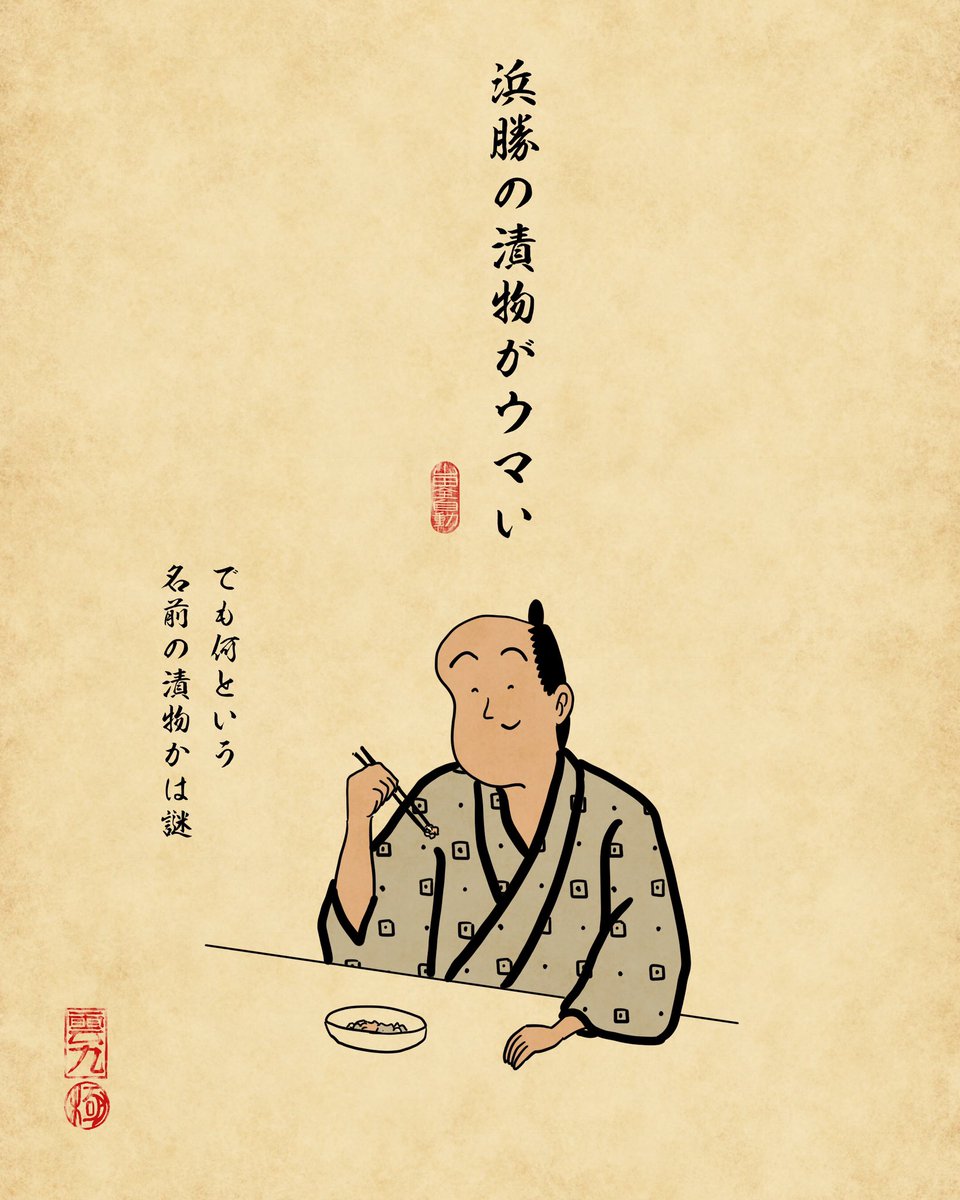 浜勝の漬物がウマい
でも何という
名前の漬物かは謎